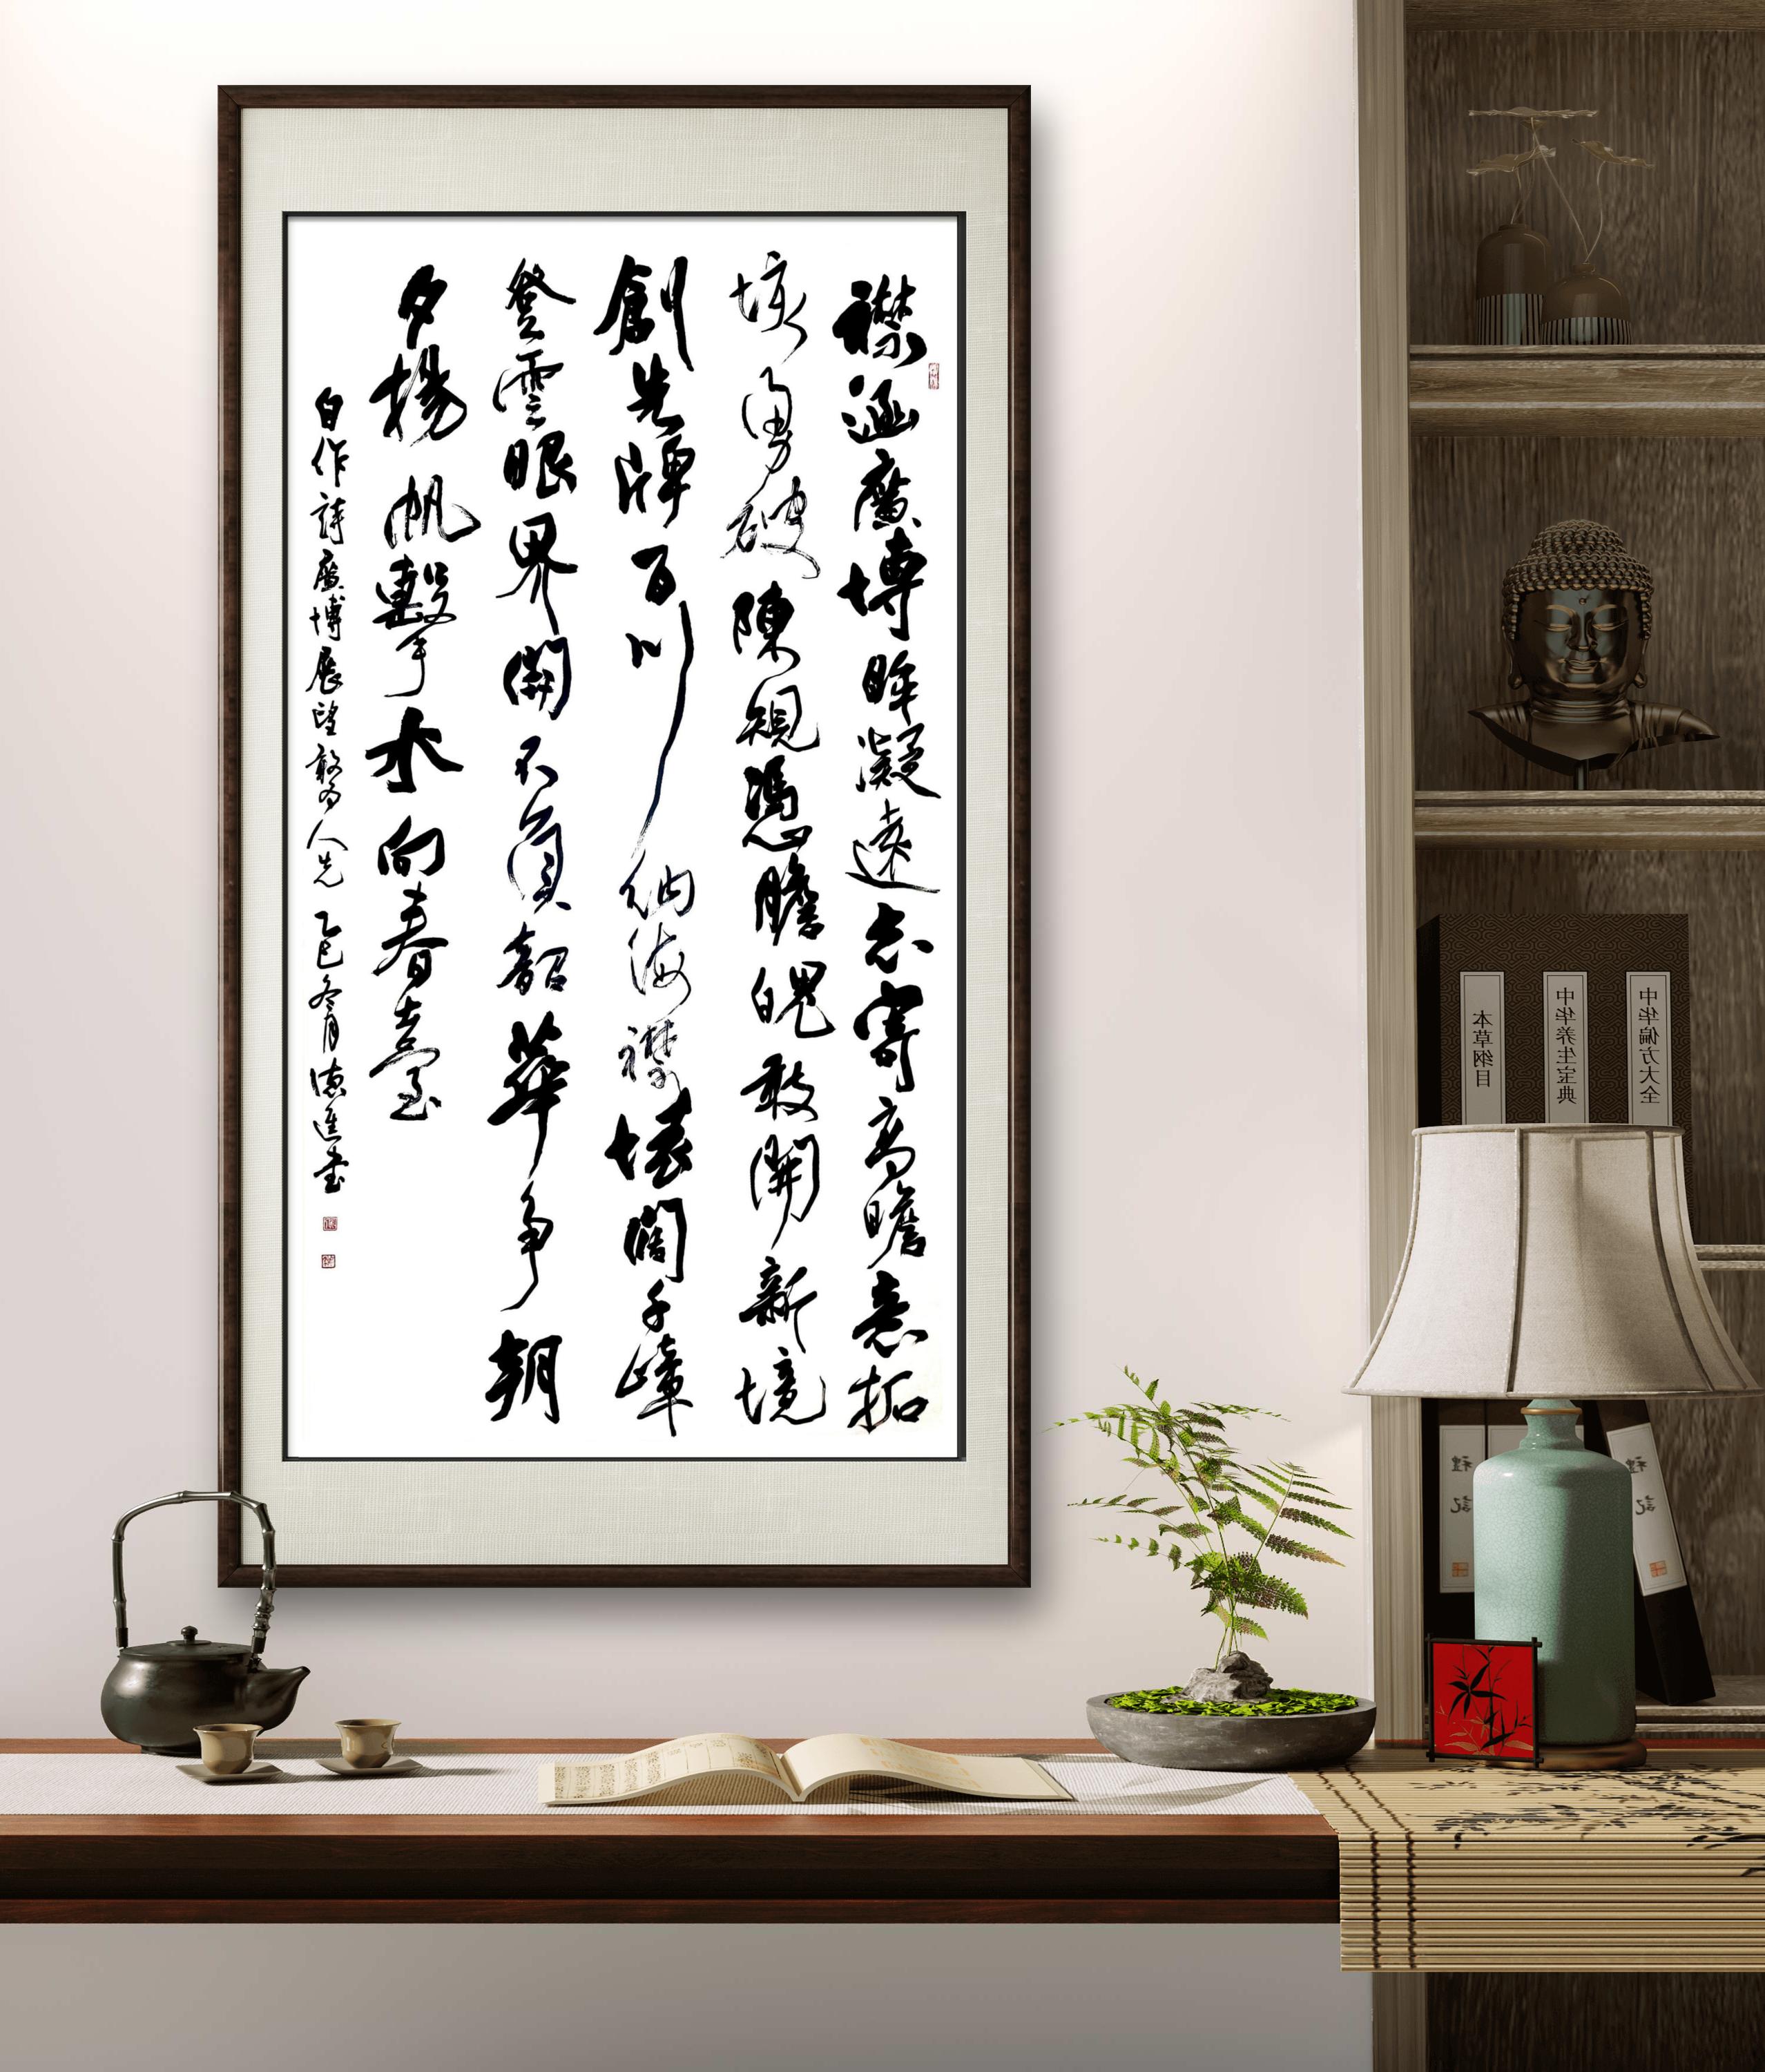 襟涵廣博眸凝遠志寄高瞻意拓
垓勇破陳規憑膽魄敢開新境
創先牌百川納海襟懷闊千嶂
登雲眼界開不負韶華爭朝
夕揚帆擊水向春臺
自作詩廣博展望敢為人先 乙巳冬月德進書
中华偏方大全
中华养生宝典
本草纲目
禮記
禮記